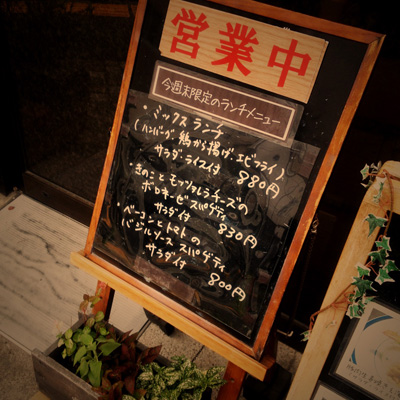 営業中
今週末限定のランチメニュー
・ミックスランチ
(ハンバーグ.鶏から揚げ.エビフライ)
サラダ・ライス付 880円
・きのことモッツァレラチーズの
ボロネーゼスパゲティ
サラダ付 830円
・ベーコンとトマトの
バジルソース スパゲティ
サラダ付 800円